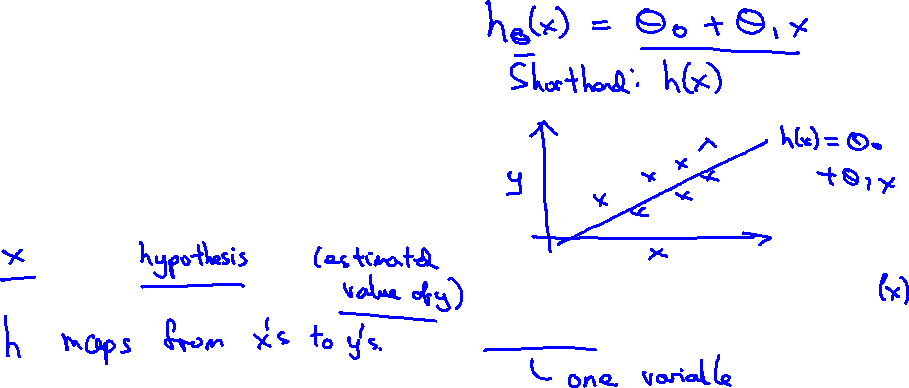 hθ(x) = θ₀ + θ₁x
Shorthand: h(x)
h(x) = θ₀
+ θ₁x
y
x
x hypothesis (estimated
value of y)
(x)
h maps from x's to y's.
one variable